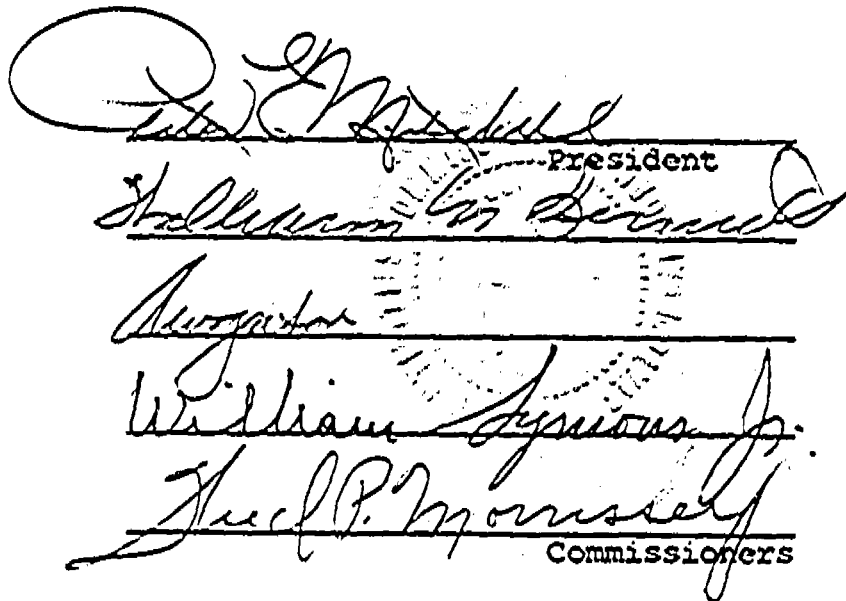 Peter E Mitchell
President
William M Bennett
William Symons Jr.
Fred P. Morrissey
Commissioners